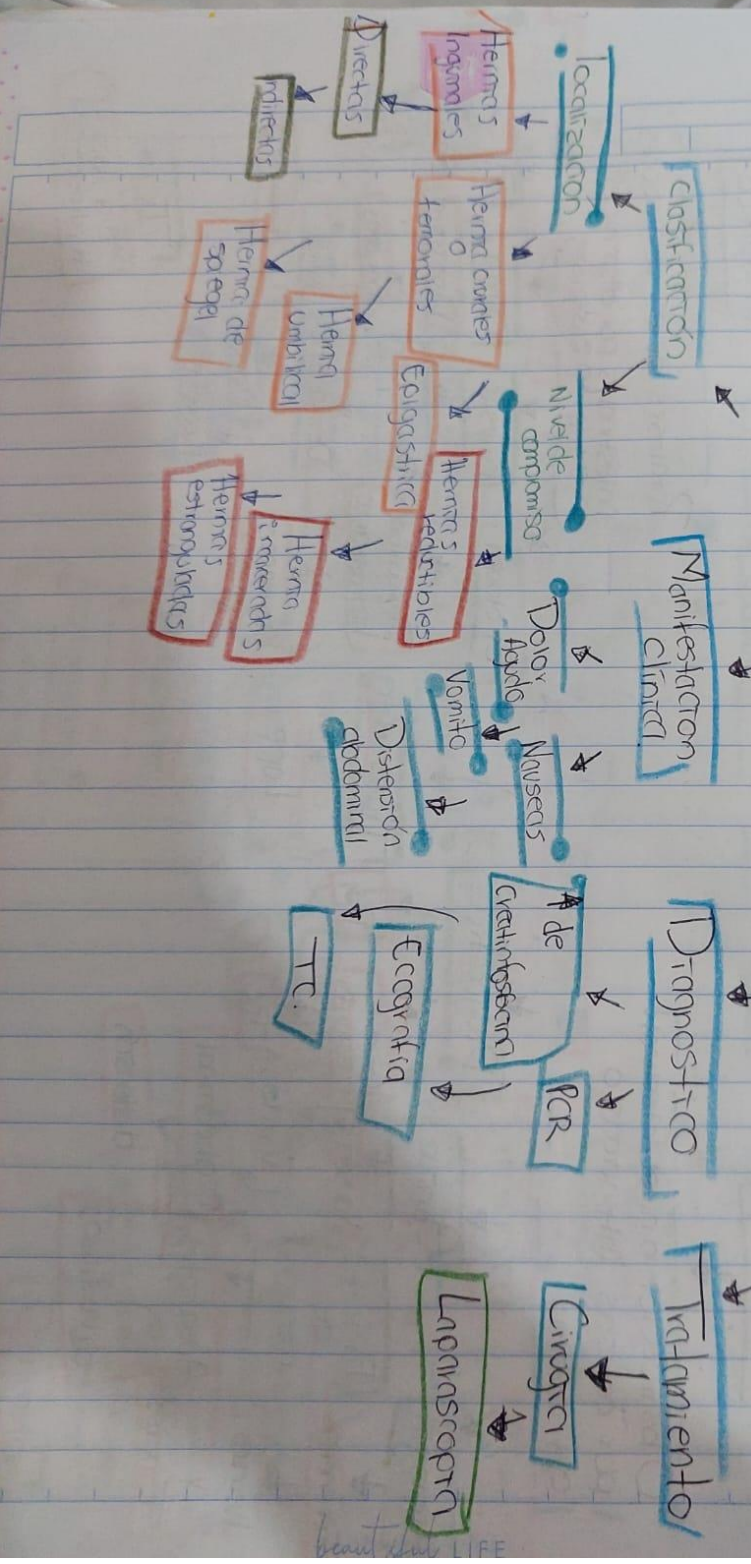 Clasificación
localización
Hernias
Inguinales
Directas
indirectas
Hernia crurales
o
femorales
Hernia
umbilical
Hernia de
spiegel
Epigastrica
Nivel de
compromiso
Hernias
reductibles
Hernia
Hernias
estranguladas
Manifestacion
clínica
Dolor
Agudo
Nauseas
Vomito
Distensión
abdominal
Diagnostico
↑ de
PCR
Ecografia
TC.
Tratamiento
Cirugia
Laparascopia
beautiful LIFE